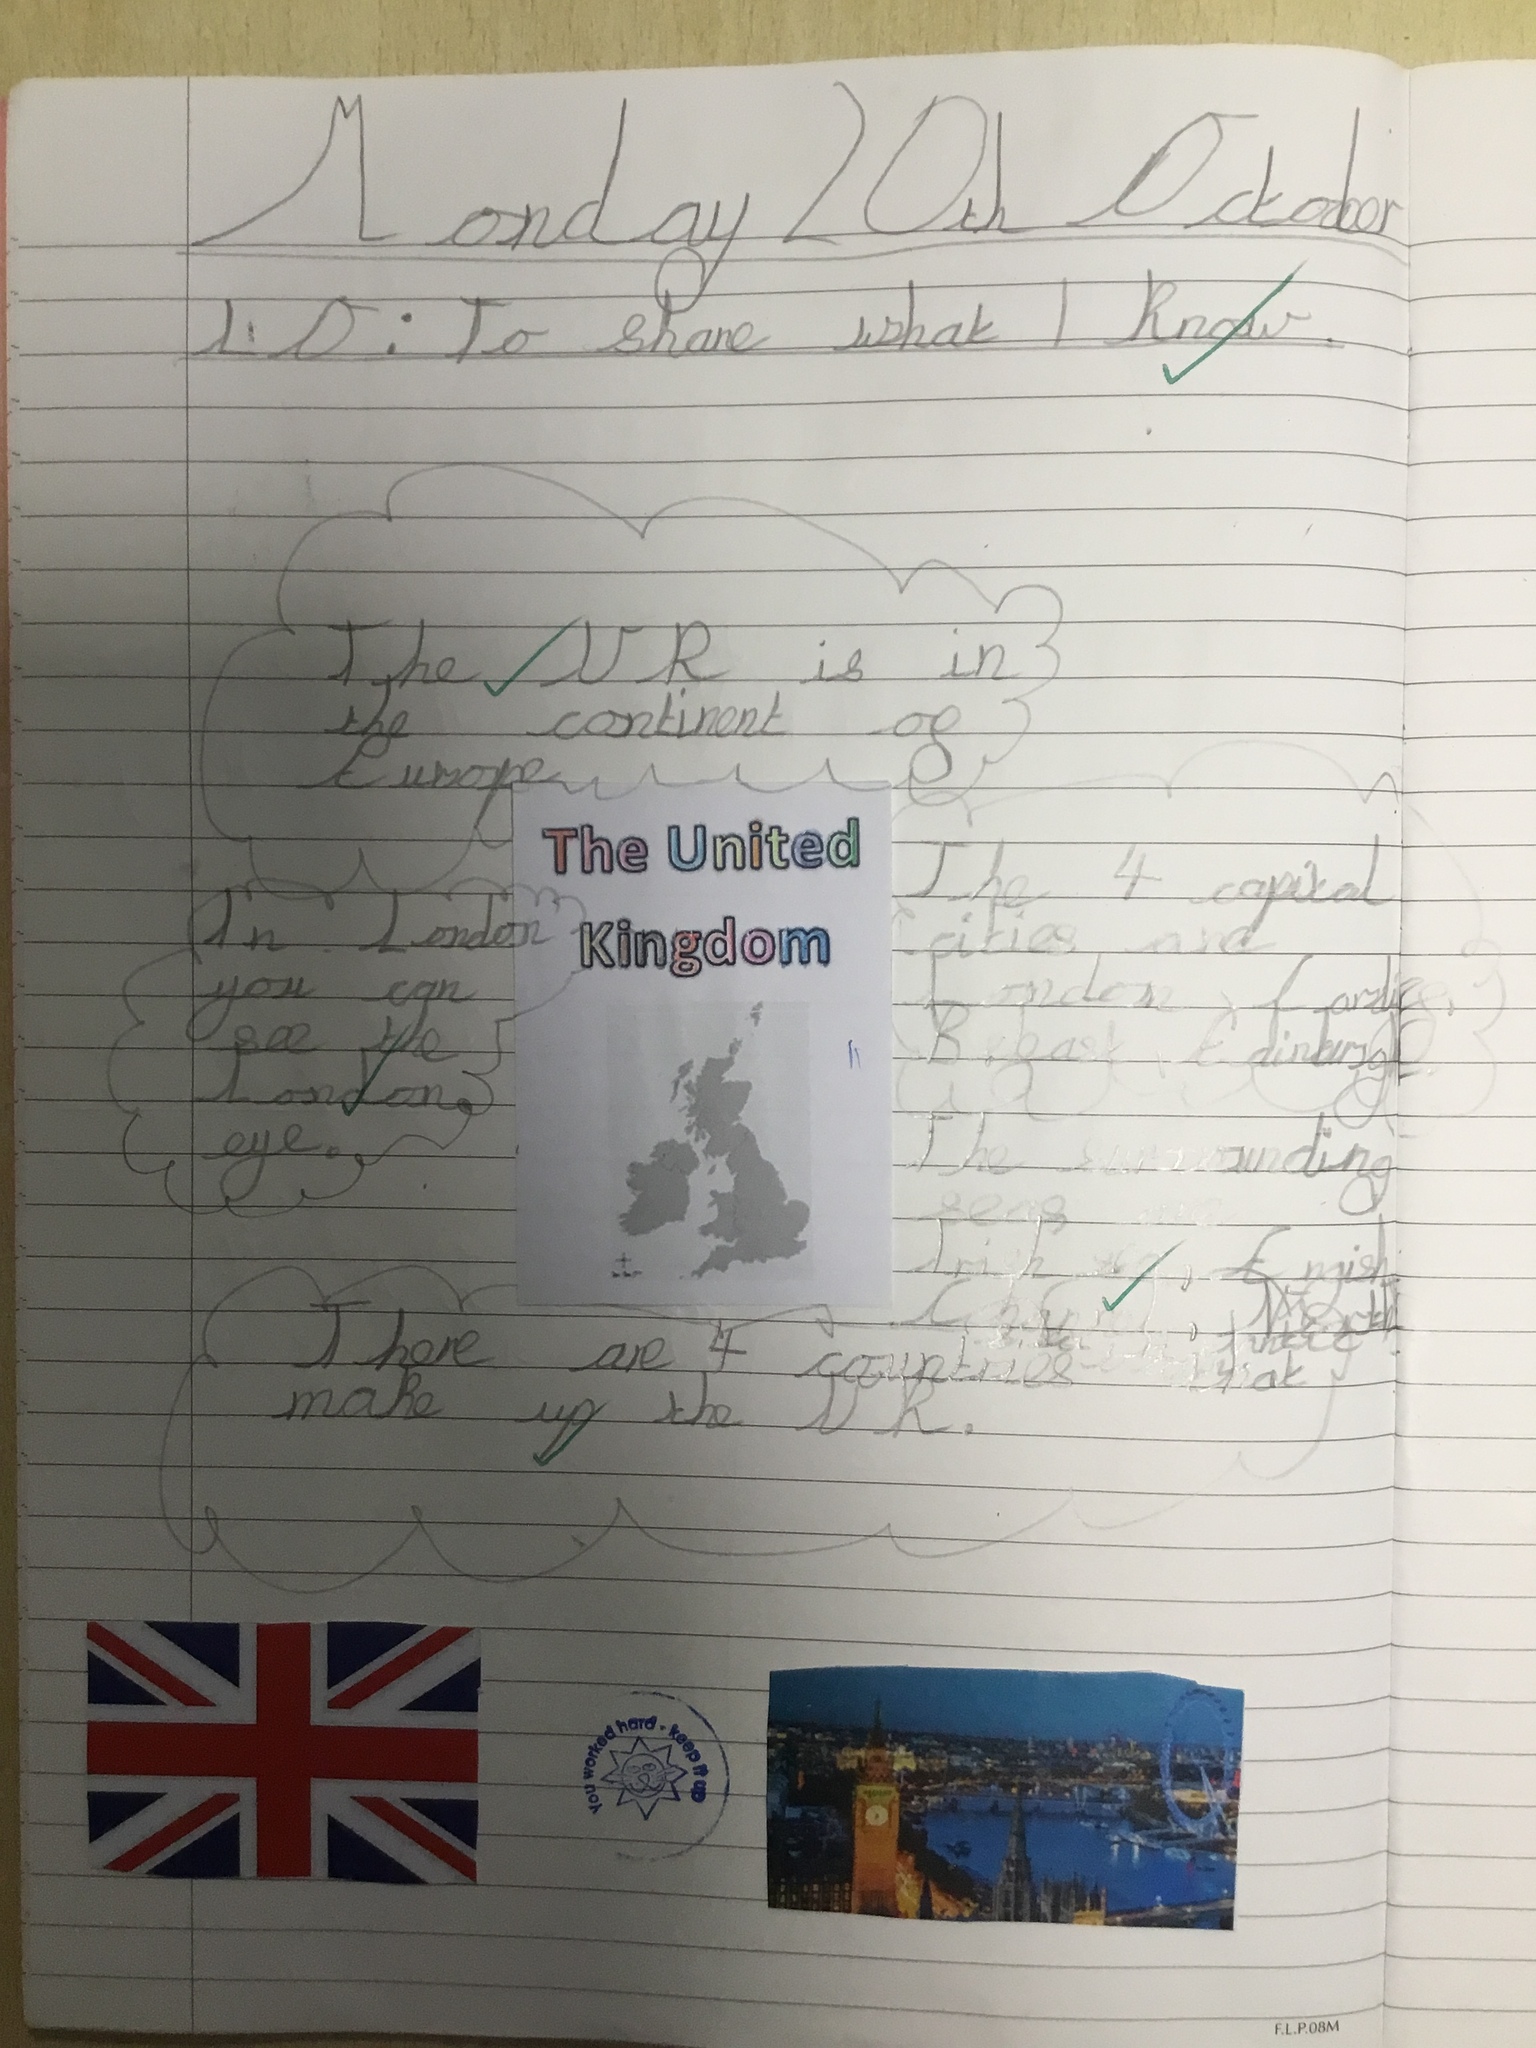 Monday 20th October
L.O: To share what I know.
The UK is in
the continent of
Europe
The United
Kingdom
In London
you can
see the
London
eye.
The 4 capital
cities are
London, Cardiff,
Belfast, Edinburgh
The surrounding
seas are
Irish sea, English
Channel, North
There are 4 countries that
make up the UK.
You worked hard - keep it up
F.L.P.08M